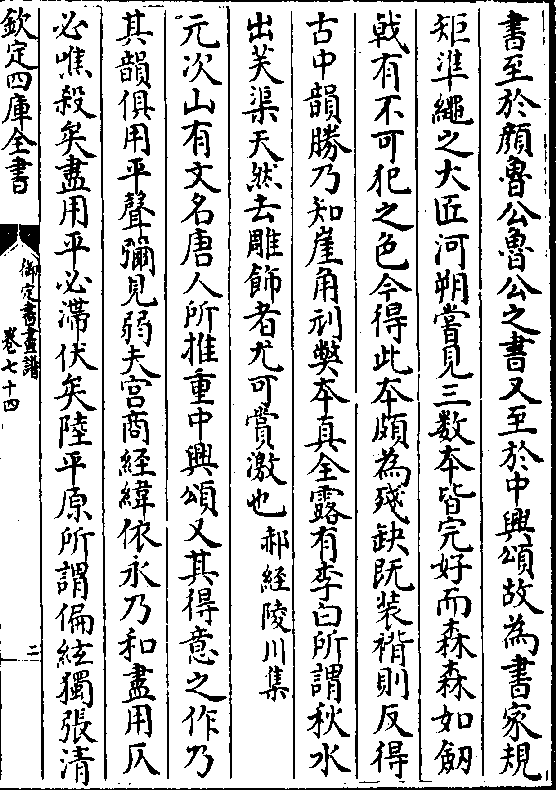 書至於顔魯公魯公之書又至於中興頌故為書家規
矩準繩之大匠河朔嘗見三數本皆完好而森森如劒
㦸有不可犯之色今得此本頗為殘缺既装褙則反得
古中韻勝乃知崖角刓獘本真全露有李白所謂秋水
出芙渠天然去雕飾者尤可賞激也 郝經陵川集
元次山有文名唐人所推重中興頌又其得意之作乃
其韻俱用平聲彌見弱夫宫商經緯依永乃和盡用仄
必噍殺矣盡用平必滯伏矣陸平原所謂偏絃獨張清
欽定四庫全書
御定書畫譜
卷七十四
二